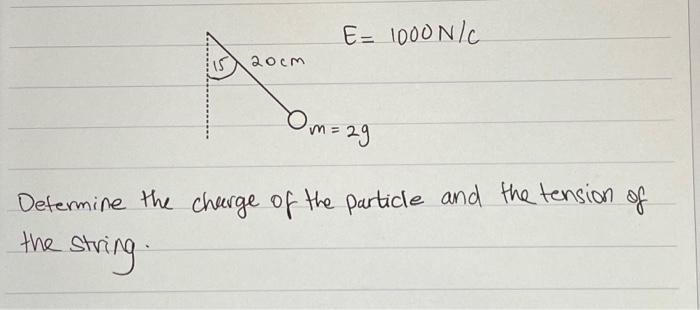 E = 1000 N/C
15 20cm
m = 2g
Determine the charge of the particle and the tension of
the string.